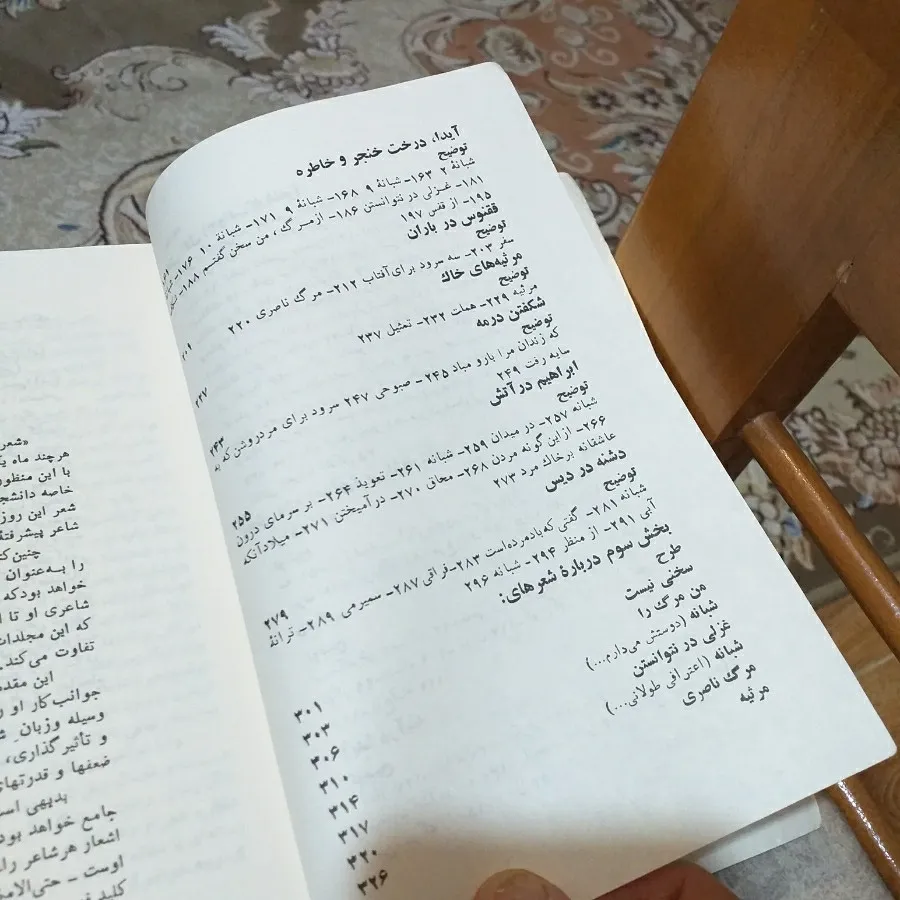 آیدا، درخت خنجر و خاطره
توضیح
شبانهٔ ۲ ۱۶۳- شبانهٔ ۹ ۱۶۸- شبانهٔ ۹ ۱۷۱- شبانهٔ ۱۰ ۱۷۶-
۱۸۱- غزلی در نتوانستن ۱۸۶- از مرگ، من سخن گفتم ۱۸۸-
۱۹۵- از قفس ۱۹۷
ققنوس در باران
توضیح ۲۰۱
سفر ۲۰۳- سه سرود برای آفتاب ۲۱۲- مرگ ناصری ۲۲۰
مرثیه‌های خاک
توضیح ۲۲۷
مرثیه ۲۲۹- همات ۲۳۲- تمثیل ۲۳۷
شکفتن در مه
توضیح ۲۴۳
که زندان مرا بارو مباد ۲۴۵- صبوحی ۲۴۷ سرود برای مرد روشن که به
سایه رفت ۲۴۹
ابراهیم در آتش
توضیح ۲۵۵
شبانه ۲۵۷- در میدان ۲۵۹- شبانه ۲۶۱- تعویذ ۲۶۴- بر سرمای درون
۲۶۶- از این گونه مردن ۲۶۸- محاق ۲۷۰- درآمیختن ۲۷۱- میلاد آنکه
عاشقانه بر خاک مرد ۲۷۳
دشنه در دیس
توضیح ۲۷۹
شبانه ۲۸۱- گفتی که باد مرده است ۲۸۳- فراقی ۲۸۷- سمیرمی ۲۸۹- ترانهٔ
آبی ۲۹۱- از منظر ۲۹۴- شبانه ۲۹۶
بخش سوم دربارهٔ شعرهای:
طرح ۳۰۱
سخنی نیست ۳۰۳
من مرگ را ۳۰۶
شبانه (دوستش می‌دارم...) ۳۱۰
غزلی در نتوانستن ۳۱۴
شبانه (اعترافی طولانی...) ۳۱۷
مرگ ناصری ۳۲۰
مرثیه ۳۲۶
«شعر
هر چند ماه یک
با این منظور
خاصه دانشج
شعر این روز
شاعر پیشرفتهٔ
چنین کت
را به‌عنوان
خواهد بود که
شاعری او تا ا
که این مجلدات
تفاوت می‌کند.
این مقده
جوانب کار او ر
وسیله وزبان ِ ش
و تأثیر گذاری،
ضعفها و قدرتهای
بدیهی است
جامع خواهد بود
اشعار هر شاعر را
اوست – حتی‌الام